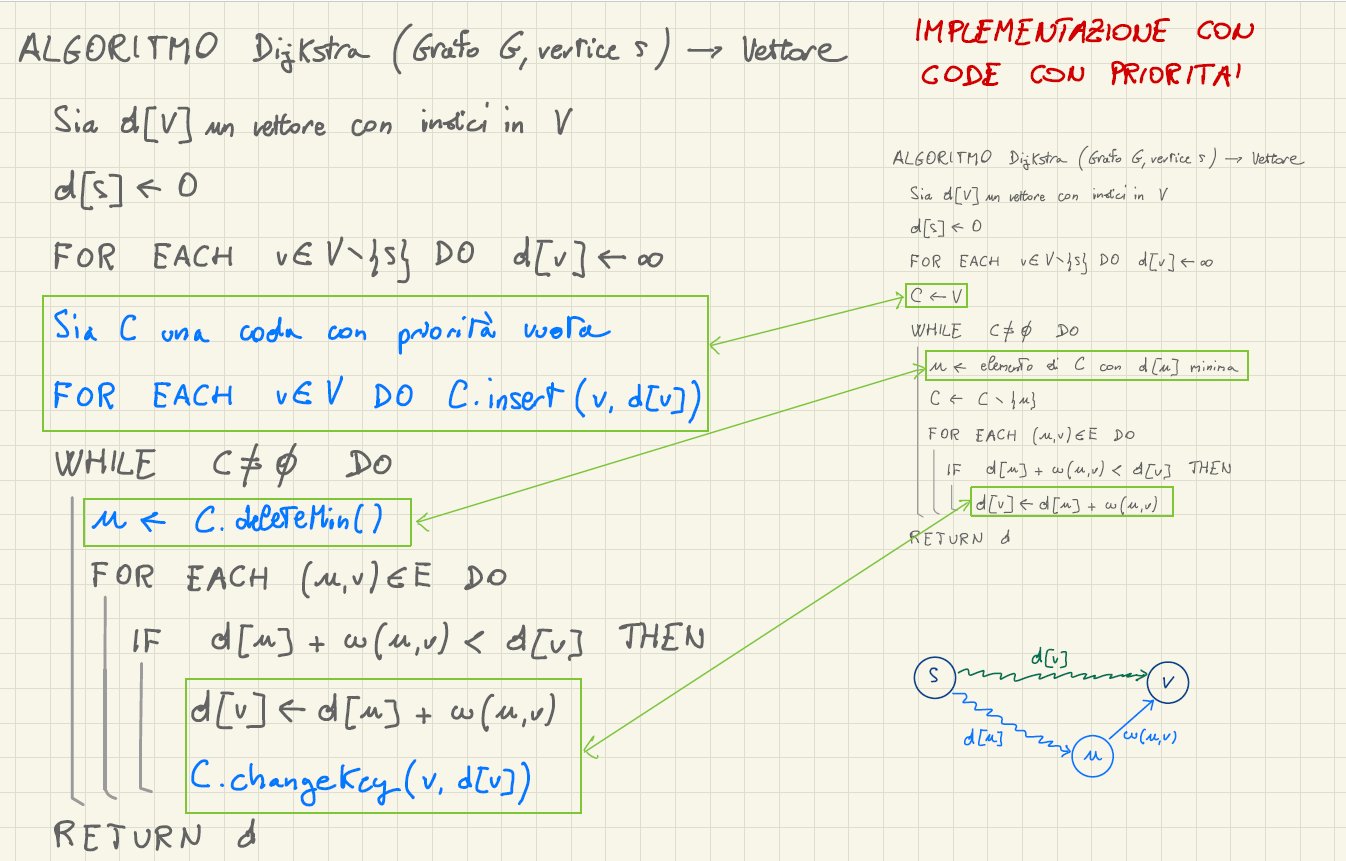 ALGORITMO Dijkstra (Grafo G, vertice s) → Vettore
Sia d[V] un vettore con indici in V
d[s] ← 0
FOR EACH v ∈ V \ {s} DO d[v] ← ∞
Sia C una coda con priorità vuota
FOR EACH v ∈ V DO C.insert(v, d[v])
WHILE C ≠ ∅ DO
u ← C.deleteMin()
FOR EACH (u,v) ∈ E DO
IF d[u] + ω(u,v) < d[v] THEN
d[v] ← d[u] + ω(u,v)
C.changeKey(v, d[v])
RETURN d
IMPLEMENTAZIONE CON
CODE CON PRIORITA'
ALGORITMO Dijkstra (Grafo G, vertice s) → Vettore
Sia d[V] un vettore con indici in V
d[s] ← 0
FOR EACH v ∈ V \ {s} DO d[v] ← ∞
C ← V
WHILE C ≠ ∅ DO
u ← elemento di C con d[u] minima
C ← C \ {u}
FOR EACH (u,v) ∈ E DO
IF d[u] + ω(u,v) < d[v] THEN
d[v] ← d[u] + ω(u,v)
RETURN d
d[v]
S
V
d[u]
ω(u,v)
u